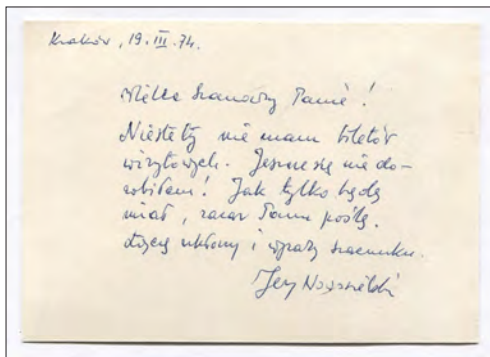 Kraków, 19. III. 74.
Wielce Szanowny Panie!
Niestety nie mam biletów
wizytowych. Jeszcze się nie do-
robiłem! Jak tylko będę
miał, zaraz Panu poślę.
Łączę ukłony i wyrazy szacunku.
Jerzy Nowosielski